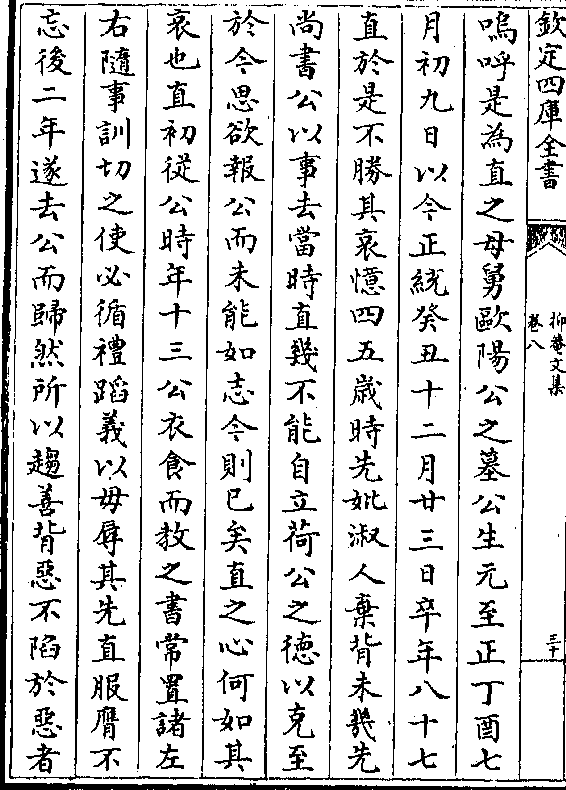 欽定四庫全書
抑菴文集
卷八
三十
嗚呼是為直之母舅歐陽公之墓公生元至正丁酉七
月初九日以今正統癸丑十二月廿三日卒年八十七
直於是不勝其哀憶四五歲時先妣淑人棄背未幾先
尚書公以事去當時直幾不能自立荷公之德以克至
於今思欲報公而未能如志今則已矣直之心何如其
哀也直初從公時年十三公衣食而教之書常置諸左
右隨事訓切之使必循禮蹈義以毋辱其先直服膺不
忘後二年遂去公而歸然所以趨善背惡不陷於惡者